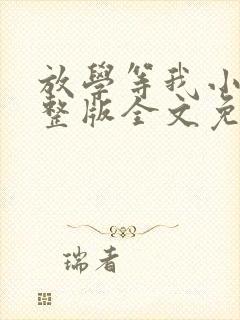 放學等我小
整版全文免
瑞者